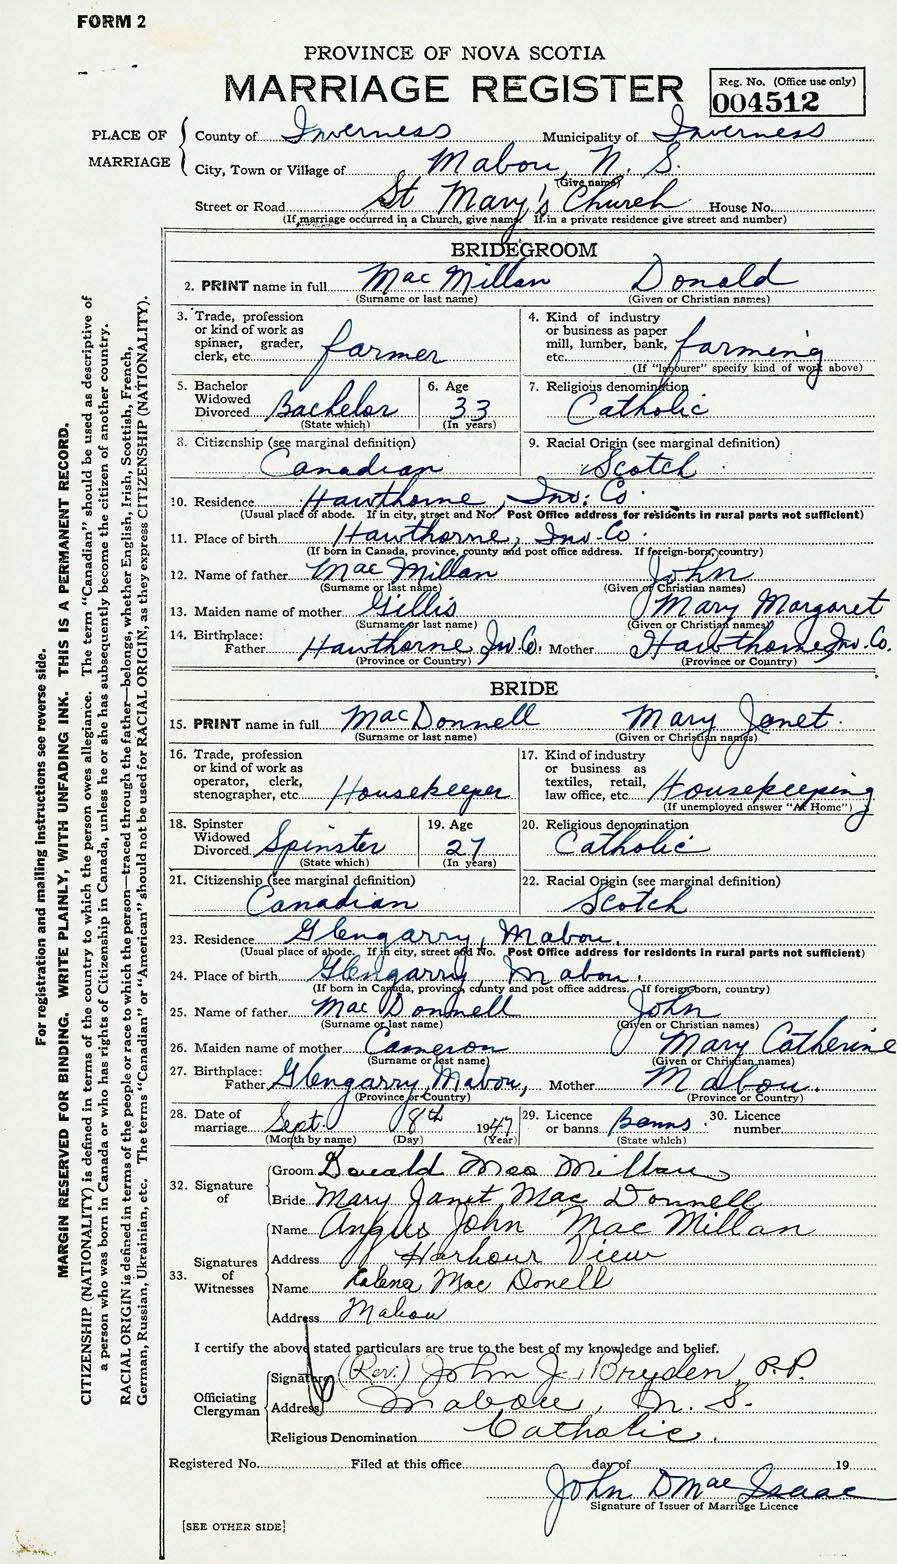 FORM 2
PROVINCE OF NOVA SCOTIA
MARRIAGE REGISTER
Reg. No. (Office use only)
004512
PLACE OF MARRIAGE
County of Inverness Municipality of Inverness
City, Town or Village of Mabou, N. S.
(Give name)
Street or Road St Mary's Church House No.
(If marriage occurred in a Church, give name. If in a private residence give street and number)
BRIDEGROOM
2. PRINT name in full MacMillan Donald
(Surname or last name) (Given or Christian names)
3. Trade, profession or kind of work as spinner, grader, clerk, etc. farmer
4. Kind of industry or business as paper mill, lumber, bank, etc. farming
(If "labourer" specify kind of work above)
5. Bachelor Widowed Divorced Bachelor
(State which)
6. Age 33
(In years)
7. Religious denomination Catholic
8. Citizenship (see marginal definition) Canadian
9. Racial Origin (see marginal definition) Scotch
10. Residence Hawthorne, Inv. Co.
(Usual place of abode. If in city, street and No. Post Office address for residents in rural parts not sufficient)
11. Place of birth Hawthorne, Inv. Co.
(If born in Canada, province, county and post office address. If foreign-born, country)
12. Name of father MacMillan John
(Surname or last name) (Given or Christian names)
13. Maiden name of mother Gillis Mary Margaret
(Surname or last name) (Given or Christian names)
14. Birthplace: Father Hawthorne Inv. Co. Mother Hawthorne Inv. Co.
(Province or Country) (Province or Country)
BRIDE
15. PRINT name in full MacDonnell Mary Janet.
(Surname or last name) (Given or Christian names)
16. Trade, profession or kind of work as operator, clerk, stenographer, etc. Housekeeper
17. Kind of industry or business as textiles, retail, law office, etc. Housekeeping
(If unemployed answer "At Home")
18. Spinster Widowed Divorced Spinster
(State which)
19. Age 27
(In years)
20. Religious denomination Catholic
21. Citizenship (see marginal definition) Canadian
22. Racial Origin (see marginal definition) Scotch
23. Residence Glengarry, Mabou.
(Usual place of abode. If in city, street and No. Post Office address for residents in rural parts not sufficient)
24. Place of birth Glengarry, Mabou.
(If born in Canada, province, county and post office address. If foreign-born, country)
25. Name of father MacDonnell John
(Surname or last name) (Given or Christian names)
26. Maiden name of mother Cameron Mary Catherine
(Surname or last name) (Given or Christian names)
27. Birthplace: Father Glengarry, Mabou, Mother Mabou.
(Province or Country) (Province or Country)
28. Date of marriage Sept. 8th 1947
(Month by name) (Day) (Year)
29. Licence or banns Banns.
(State which)
30. Licence number
32. Signature of
Groom Donald MacMillan
Bride Mary Janet MacDonnell
33. Signatures of Witnesses
Name Angus John MacMillan
Address Harbour View
Name MacDonell
Address Mabou
I certify the above stated particulars are true to the best of my knowledge and belief.
Officiating Clergyman
Signature (Rev.) John J. Bryden, P.P.
Address Mabou, N. S.
Religious Denomination Catholic.
Registered No. Filed at this office day of 19
John D MacIsaac
Signature of Issuer of Marriage Licence
[SEE OTHER SIDE]
For registration and mailing instructions see reverse side.
MARGIN RESERVED FOR BINDING. WRITE PLAINLY, WITH UNFADING INK. THIS IS A PERMANENT RECORD.
CITIZENSHIP (NATIONALITY) is defined in terms of the country to which the person owes allegiance. The term "Canadian" should be used as descriptive of
a person who was born in Canada or who has rights of Citizenship in Canada, unless he or she has subsequently become the citizen of another country.
RACIAL ORIGIN is defined in terms of the people or race to which the person—traced through the father—belongs, whether English, Irish, Scottish, French,
German, Russian, Ukrainian, etc. The terms "Canadian" or "American" should not be used for RACIAL ORIGIN, as they express CITIZENSHIP (NATIONALITY).